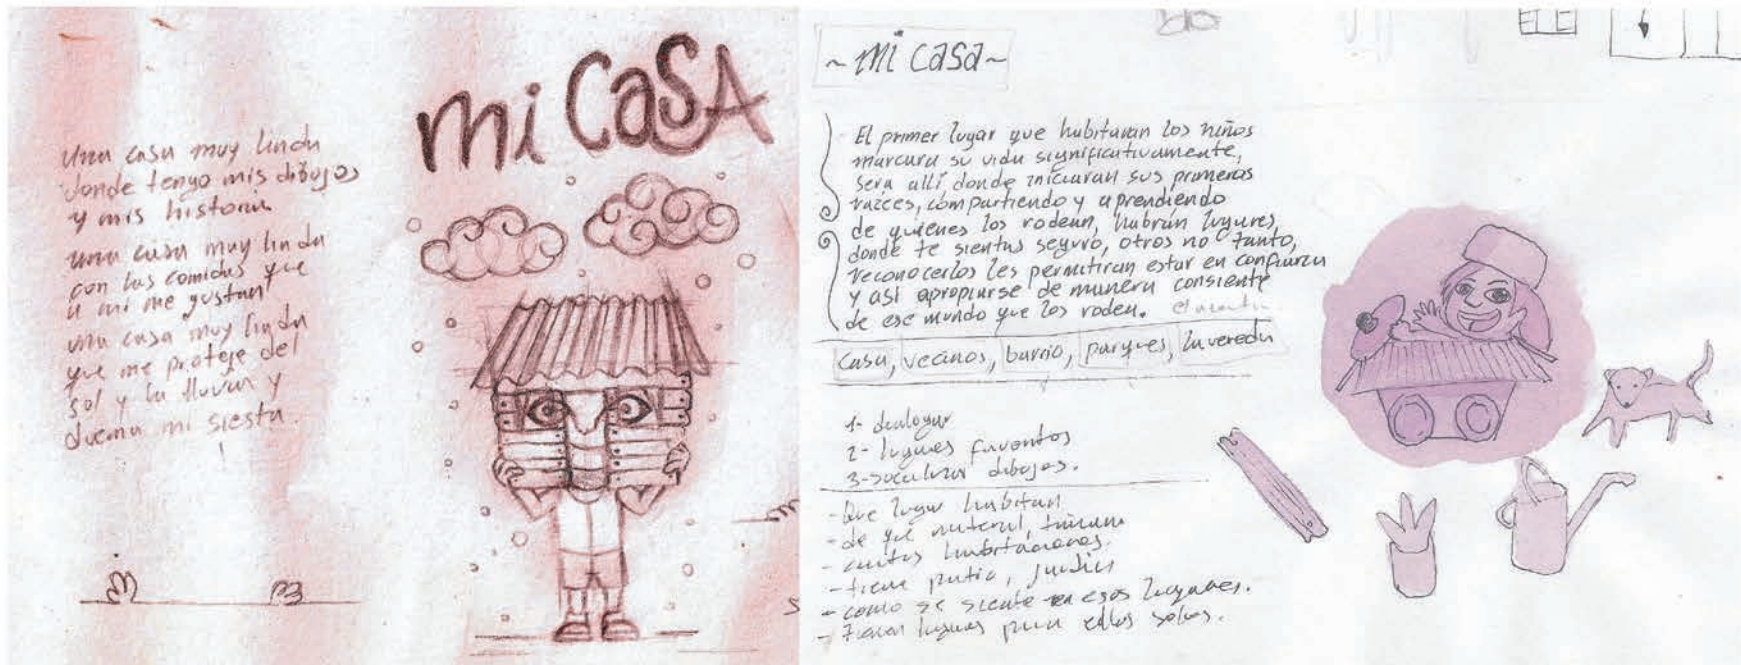 mi CaSA
Una casa muy linda
donde tengo mis dibujos
y mis historia
una casa muy linda
con las comidas que
a mi me gustan
una casa muy linda
que me proteje del
sol y la lluvia y
mi siesta.
~ mi Casa ~
El primer lugar que habitaran los niños
marcara su vida significativamente,
sera allí donde iniciaran sus primeras
raices, compartiendo y aprendiendo
de quienes los rodean, habrán lugares
donde te sientas seguro, otros no tanto,
reconocerlos les permitiran estar en confianza
y así apropiarse de manera consiente
de ese mundo que los rodea.
Casa, vecinos, barrio, parques, la vereda
1- dialogar
2- lugares favoritos
3- socializar dibujos.
- Que lugar habitan
- de que material,
- habitaciones.
- tiene patio, jardin
- como se siente en esos lugares.
- Tienen lugares para ellos solos.